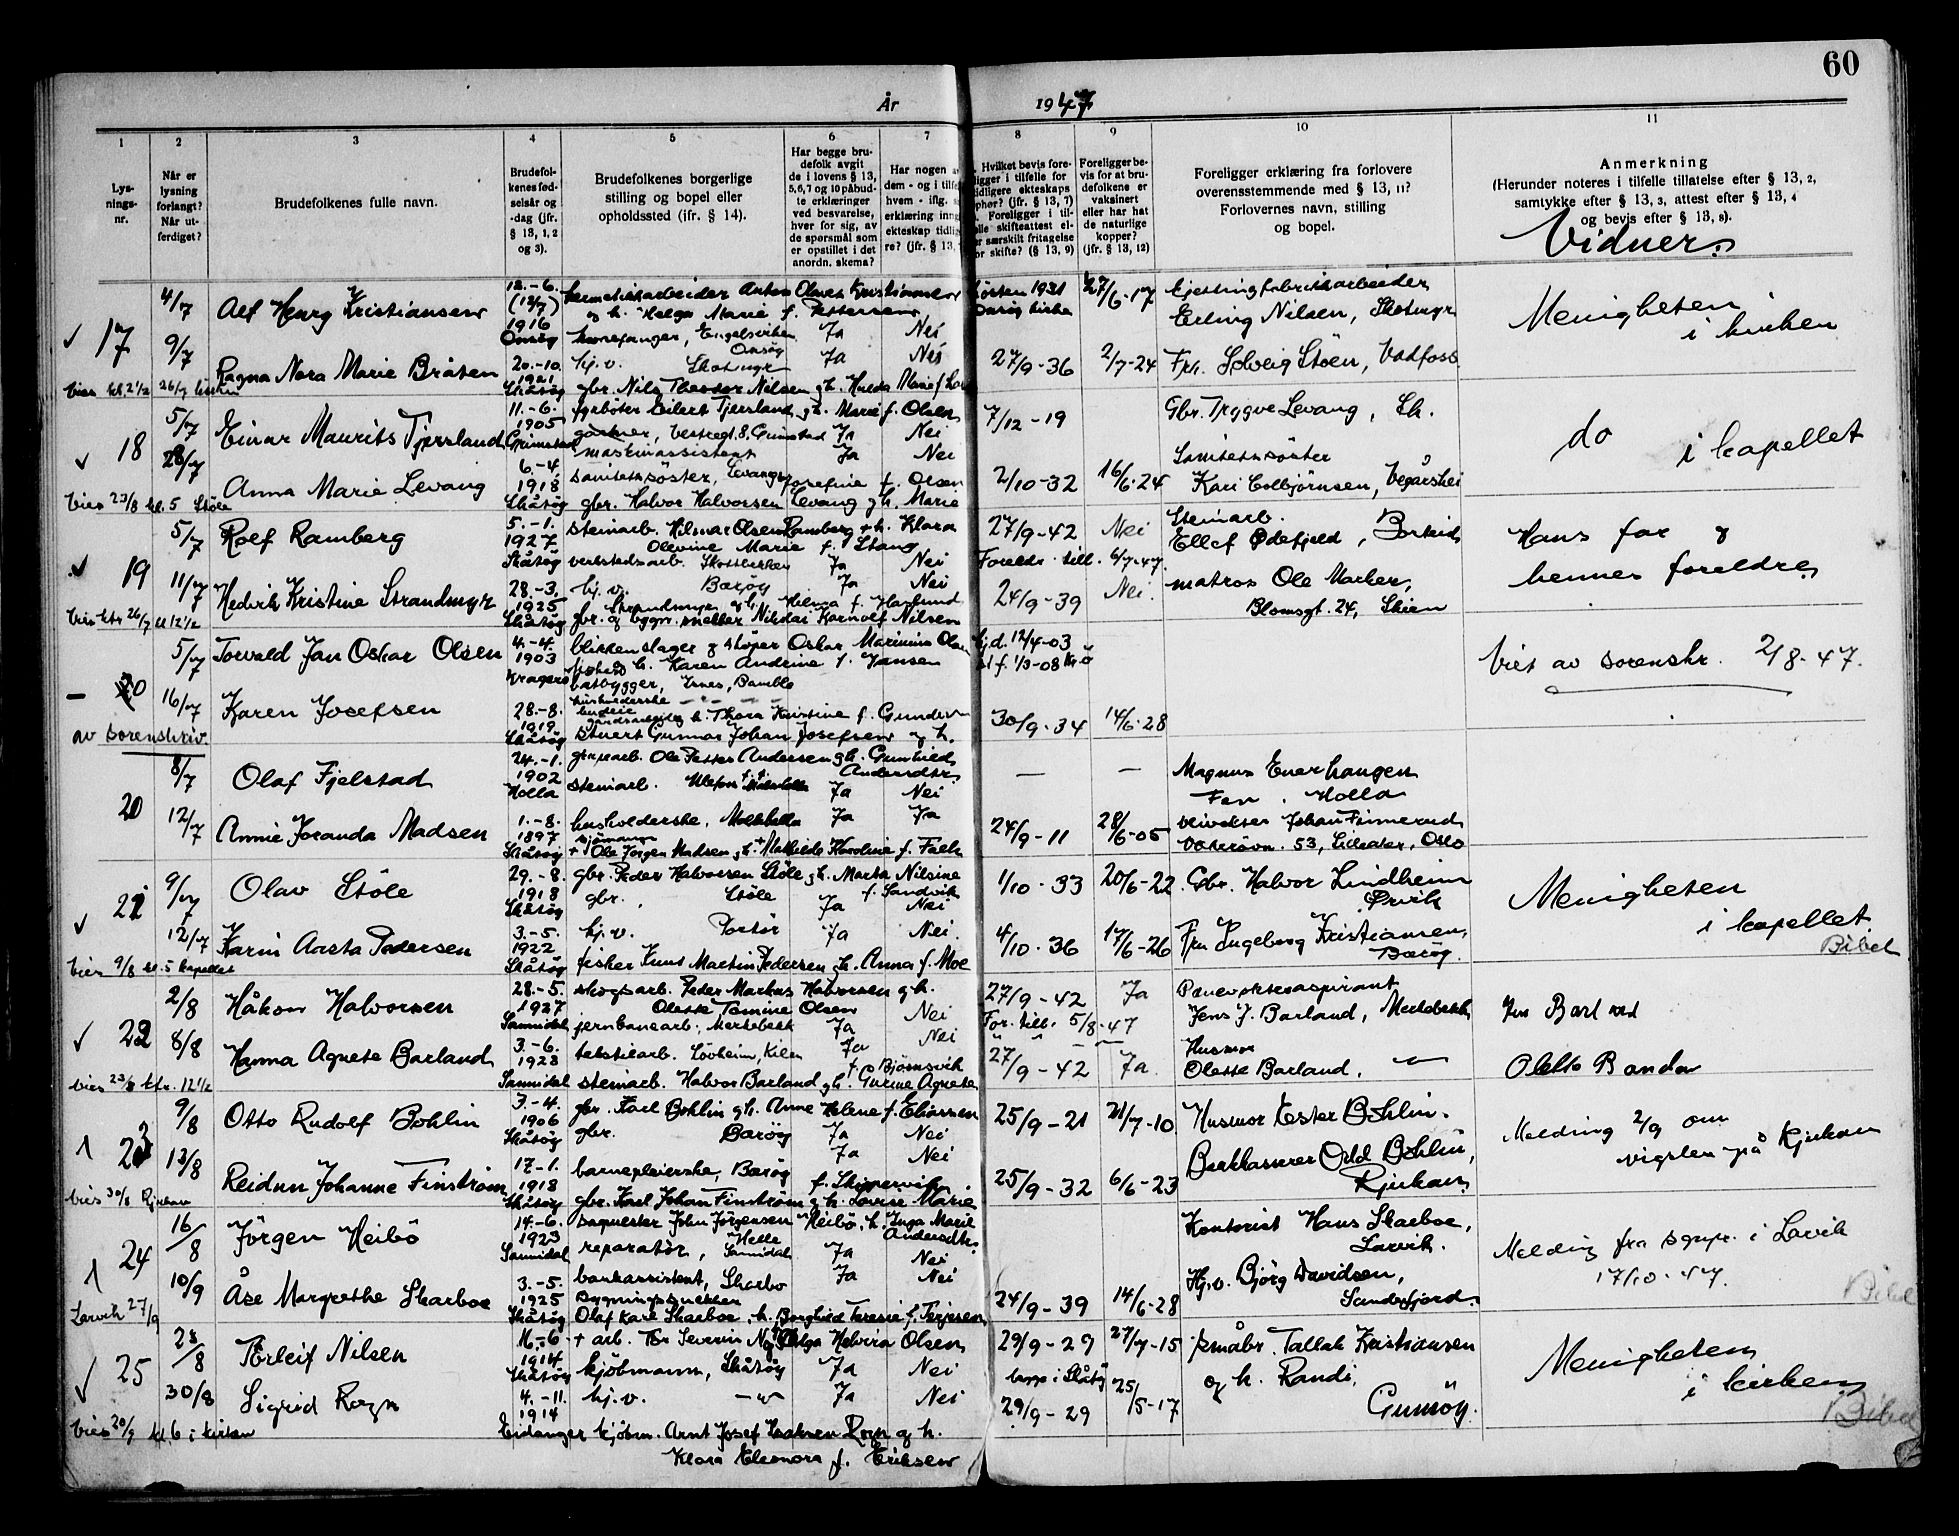 60
År 1947
1 2 3 4 5 6 7 8 9 10 11
Lys-
nings-
nr.
Når er
lysning
forlangt?
Når ut-
ferdiget?
Brudefolkenes fulle navn.
Brudefol-
kenes fød-
selsår og
-dag (jfr.
§ 13, 1, 2
og 3).
Brudefolkenes borgerlige
stilling og bopel eller
opholdssted (ifr. § 14).
Har begge bru-
defolk avgit
de i lovens § 13,
5,6,7 og 10 påbud-
te erklæringer
ved besvarelse,
hver for sig, av
de spørsmål som
er opstillet i det
anordn. skema?
Har nogen
dem - og i tilfe
hvem - iflg.
erklæring inng
ekteskap tidlig
re? (jfr. § 13,
Hvilket bevis fore-
ligger i tilfelle for
idligere ekteskaps
phør? (jfr. § 13, 7)
Foreligger i til-
elle skifteattest el-
er særskilt fritagelse
or skifte? (§ 13, 9)
Foreligger be-
vis for at bru-
defolkene er
vaksinert
eller har hat
de naturlige
kopper?
(jfr. § 13, 12)
Foreligger erklæring fra forlovere
overensstemmende med § 13, 11?
Forlovernes navn, stilling
og bopel.
Anmerkning
(Herunder noteres i tilfelle tillatelse efter § 13, 2,
samtykke efter § 13, 3, attest efter § 13, 4
og bevis efter § 13, 8).
Vidner:
17 4/7 Alf Henry Kristiansen 12.-6. (13/7) 1916 Onsøy
hermetikkarbeider Anton Olaves Kristiansen
og h. Helga Marie f. Pettersen
Engelsviken Onsøy Ja Nei
27/6-17 Erling Nilsen, Skotmyr
Menigheten
i kirken
9/7 Ragna Nora Marie Bråten 20.-10. 1921 Skåtøy
hj.v. Skotmyr Ja Nei 27/9-36 2/7-24 Frk. Solveig Stöen, Vadfoss
gbr. Nils Theodor Nilsen og h. Hulda Marie f.
Vies kl. 2 1/2 26/7 kirken
18 5/7 Einar Maurits Tjersland 11.-6. 1905 Grimstad
fyrbøter Eilert Tjersland og h. Marie f. Olsen 7/12-19 Gbr. Tryggve Levang, Sk.
gartner, Vestregt. 8, Grimstad Ja Nei
maskinassistent Ja Nei
do i kapellet
28/7 Anna Marie Levang 6.-4. 1918 Skåtøy
sanitetssøster, Levang 2/10-32 16/6-24 Sanitetssøster
Kari Colbjörnsen, Vegårshei
gbr. Halvor Halvorsen Levang og h. Marie Josefine f. Olsen
Vies 23/8 kl. 5 Støle
19 5/7 Rolf Ramberg 5.-1. 1927 Skåtøy
steinarb. Hilmar Olsen Ramberg + h. Klara
Olevine Marie f. Stang
verkstedsarb. Ja Nei
27/9-42 Nei
Foreldr. till. 6/7-47
Steinarb.
Ellef Ødefjeld,
Hans far og
hennes foreldre
11/7 Hedvik Kristine Strandmyr 28.-3. 1925 Skåtøy
hj.v. Barøy Ja Nei 24/9-39 Nei. matros Ole Marker,
Blomsgt. 24, Skien
20 5/7 Torvald Jan Oskar Olsen 4.-4. 1903 Kragerø
blikkenslager og støper Oskar Marinius
h. Karen Andrine f. Jansen
båtbygger, Bamble
12/4-03
1/3-08
Viet av sorenskr. 2/8-47.
16/7 Karen Josefsen 28.-8. 1919 Skåtøy
h. Thora Kristine f. Gunder
stuert Gunnar Johan Josefsen og h.
30/9-34 14/6-28
av sorenskriv.
20 8/7 Olaf Fjelstad 24.-1. 1902 Holla
grubearb. Ole Petter Andersen og h. Gunhild
Andersdtr.
steinarb. Ulefoss Ja Nei
— — Magnus Enerhaugen
Fen. Holla
12/7 Annie Joranda Madsen 1.-8. 1897 Skåtøy
husholderske, Ja Ja 24/9-11 28/6-05
+ Ole Jørgen Madsen og h. + Mathilde Karoline f. Falk
53, Lilleaker, Oslo
21 9/7 Olav Stöle 29.-8. 1918 Skåtøy
gbr. Peder Halvorsen Stöle og h. Marta Nilsine
f. Sandvik
gbr. Stöle Ja Nei
1/10-33 20/6-22 Gbr. Halvor Lindheim
Ørvik
Menigheten
i kapellet
Bibel
12/7 Karin Aasta Pedersen 3.-5. 1922 Skåtøy
hj.v. Portør Ja Nei 4/10-36 17/6-26 Fru Ingeborg Kristiansen,
Barøy.
fisker Knut Martin Pedersen og h. Anna f. Moe
Vies 9/8 kl. 5 kapellet
22 2/8 Håkon Halvorsen 28.-5. 1927 Sannidal
skogsarb. Peder Markus Halvorsen og h.
Olette Tomine Olsen
jernbanearb. Merkebekk Ja Nei
27/9-42 Ja
For. till. 5/8-47
Jens J. Barland, Merkebekk
8/8 Hanna Agnete Barland 3.-6. 1923 Sannidal
tekstilarb. Lövheim, Kilen Ja Nei 27/9-42 Ja. Husmor
Olette Barland.
f. Bjørnsvik
steinarb. Halvor Barland og h. Gurine Agnete
Vies 23/8 kl. 12 1/2
23 9/8 Otto Rudolf Bohlin 3.-4. 1906 Skåtøy
gbr. Karl Bohlin og h. Anne Helene f. Eliassen
gbr. Barøy Ja Nei
25/9-21 21/7-10 Husmor Ester Bohlin.
Melding 2/9 om
vigslen på Rjukan
13/8 Reidun Johanne Finström 17.-1. 1918 Skåtøy
barnepleierske, Barøy Ja Nei 25/9-32 6/6-23 Odd Bohlin,
Rjukan.
f. Skippervik
gbr. Karl Johan Finström og h. Lovise Marie
Vies 30/8 Rjukan
24 16/8 Jörgen Heibö 14.-6. 1923 Sannidal
John Jörgensen Heibö, h. Inga Marie
Andersdtr.
reparatör, Helle Sannidal Ja Nei
Kontorist Hans Skarboe,
Larvik.
Melding fra sgpr. i Larvik
17/10-47.
Bibel
10/9 Åse Margrethe Skarboe 3.-5. 1925 Skåtøy
bankassistent, Skarbo Ja Nei 24/9-39 14/6-28 Hj.v. Bjørg Davidsen,
Sandefjord.
Olaf Karl Skarboe, h. Borghild Teresie f. Terjesen
Larvik 27/9
25 23/8 Torleif Nilsen 16.-6. 1914 Skåtøy
+ arb. Tor Severin Helga Helvira Olsen
kjöbmann, Skåtøy Ja Nei
29/9-29 27/7-15 Tallak Kristiansen
og h. Randi,
Gumöy.
Menigheten
i kirken
Bibel
30/8 Sigrid Rogn 4.-11. 1914 Eidanger
hj.v. Ja Nei 29/9-29 25/5-17
kjöbm. Arnt Josef Isaksen Rogn og h.
Klara Eleonora f. Eriksen
Vies 20/9 kl. 6 i kirken